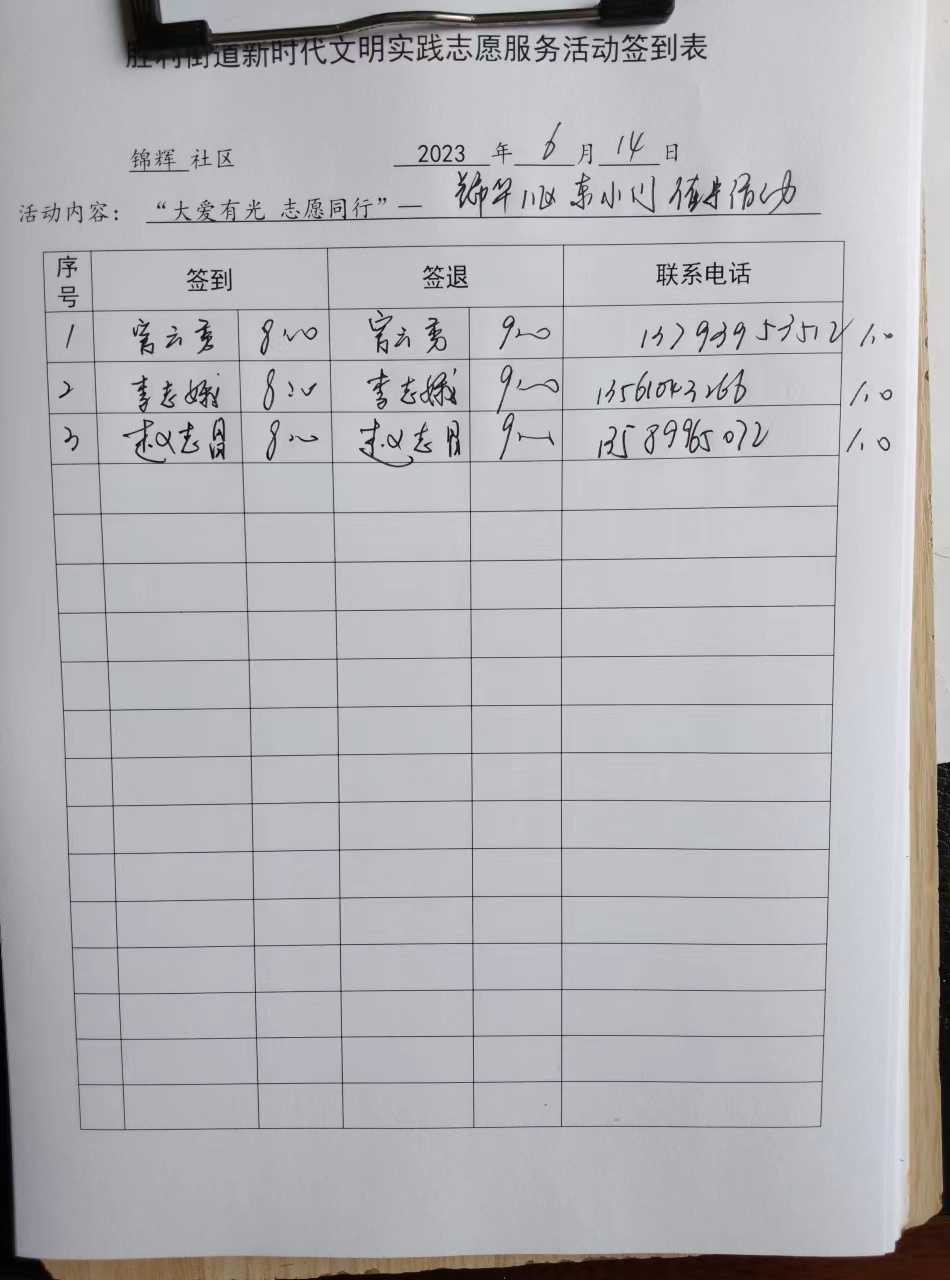 胜利街道新时代文明实践志愿服务活动签到表
锦辉 社区 2023 年 6 月 14 日
活动内容: “大爱有光 志愿同行”— 东小门 活动
序号 签到 签退 联系电话
1 宫云秀 8:00 宫云秀 9:00 13793953512 1.0
2 李志娥 8:00 李志娥 9:00 13561043266 1.0
3 赵志昌 8:00 赵志昌 9:00 13589965072 1.0